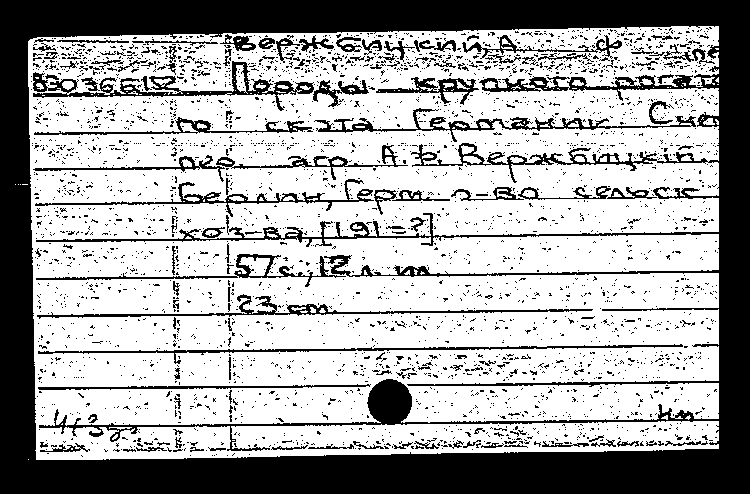 Вержбицкий, А. Ф. пе
83036612 Породы крупного рогато
го скота Германии. С нем
пер. агр. А.Ф. Вержбицкiй.
Берлин, Герм. о-во сельск
хоз-ва, [191-?]
57 с., 12 л. ил.
23 cm.